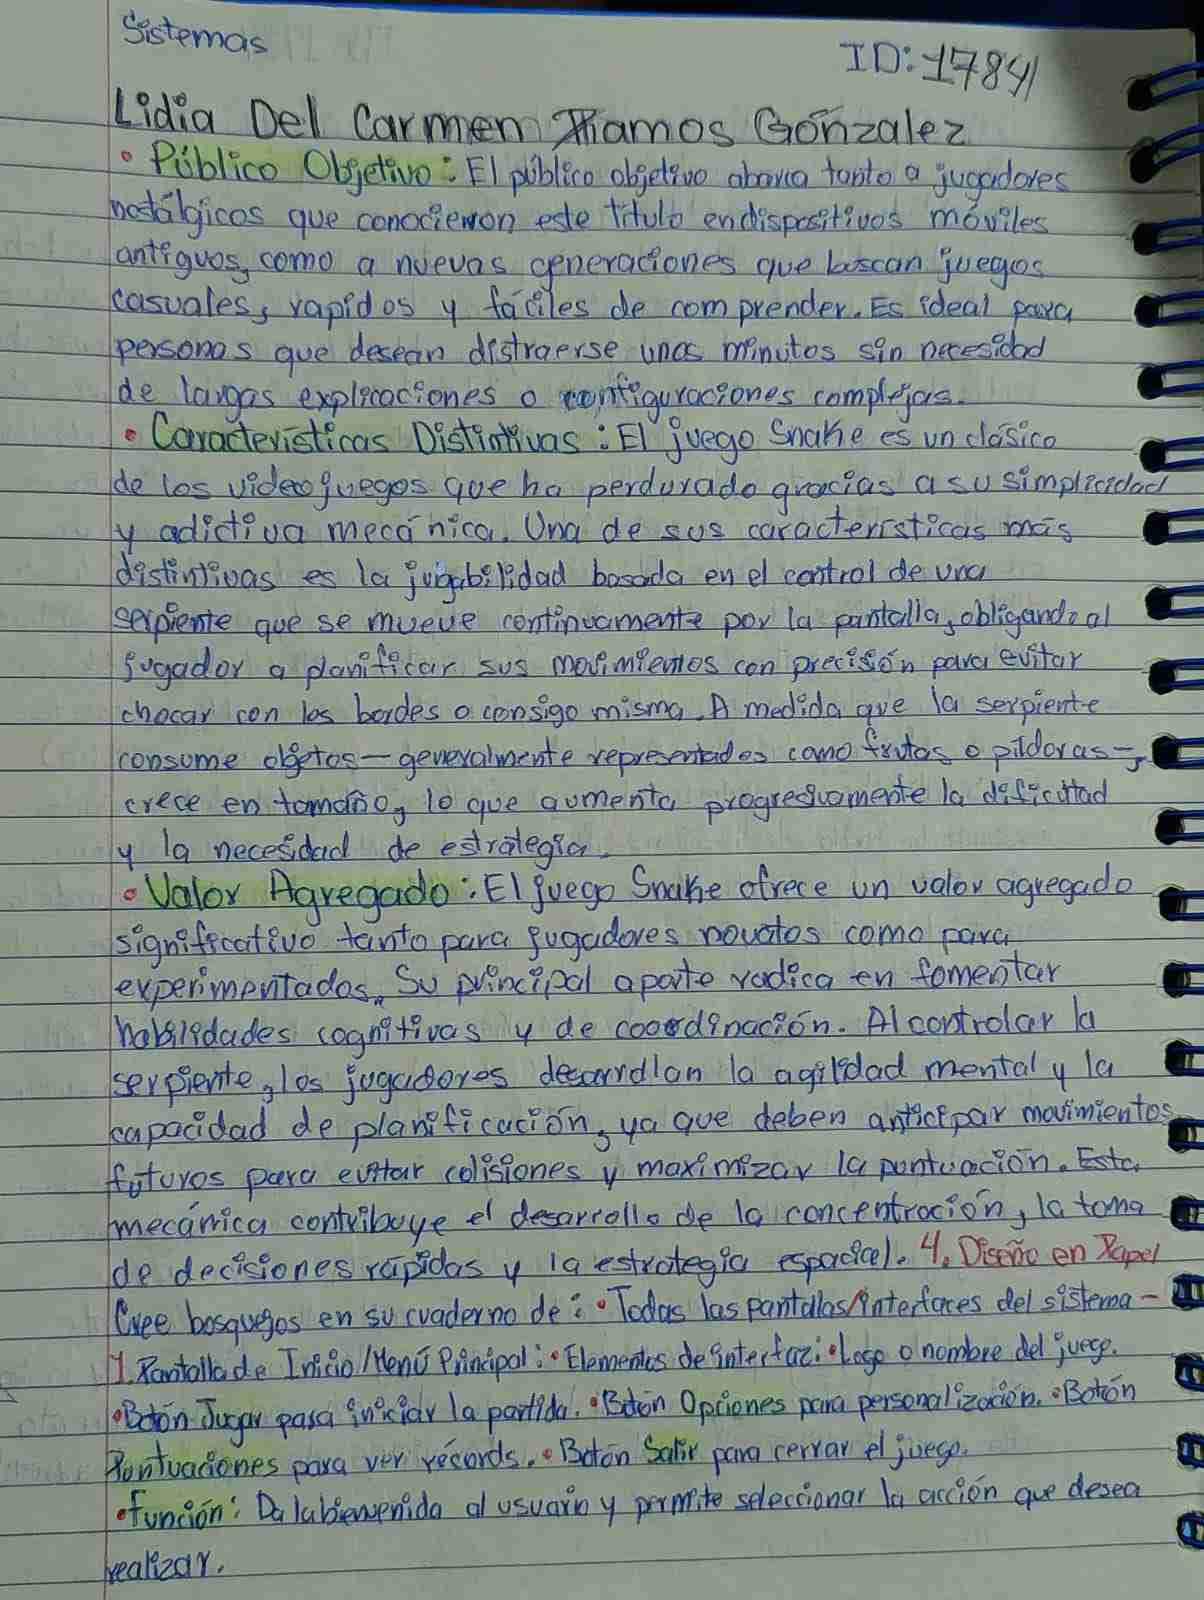 Sistemas
ID: 17841
Lidia Del Carmen Ramos Gónzalez
• Público Objetivo: El público objetivo abarca tanto a jugadores
nostálgicos que conocieron este título en dispositivos móviles
antiguos, como a nuevas generaciones que buscan juegos
casuales, rapidos y fáciles de comprender. Es ideal para
personas que desean distraerse unos minutos sin necesidad
de largas explicaciones o configuraciones complejas.
• Características Distintivas: El juego Snake es un clásico
de los videojuegos que ha perdurado gracias a su simplicidad
y adictiva mecánica. Una de sus características más
distintivas es la jugabilidad basada en el control de una
serpiente que se mueve continuamente por la pantalla, obligando al
jugador a planificar sus movimientos con precisión para evitar
chocar con los bordes o consigo misma. A medida que la serpiente
consume objetos — generalmente representados como frutas o píldoras —,
crece en tamaño, lo que aumenta progresivamente la dificultad
y la necesidad de estrategia.
• Valor Agregado: El juego Snake ofrece un valor agregado
significativo tanto para jugadores novatos como para
experimentados. Su principal aporte radica en fomentar
habilidades cognitivas y de coordinación. Al controlar la
serpiente, los jugadores desarrollan la agilidad mental y la
capacidad de planificación, ya que deben anticipar movimientos
futuros para evitar colisiones y maximizar la puntuación. Esta
mecánica contribuye el desarrollo de la concentración, la toma
de decisiones rápidas y la estrategia espacial. 4. Diseño en Papel
Cree bosquejos en su cuaderno de: • Todas las pantallas/interfaces del sistema -
1. Pantalla de Inicio/Menú Principal: • Elementos de interfaz: • Logo o nombre del juego.
• Botón Jugar para iniciar la partida. • Botón Opciones para personalización. • Botón
Puntuaciones para ver récords. • Botón Salir para cerrar el juego.
• Función: Da la bienvenida al usuario y permite seleccionar la acción que desea
realizar.